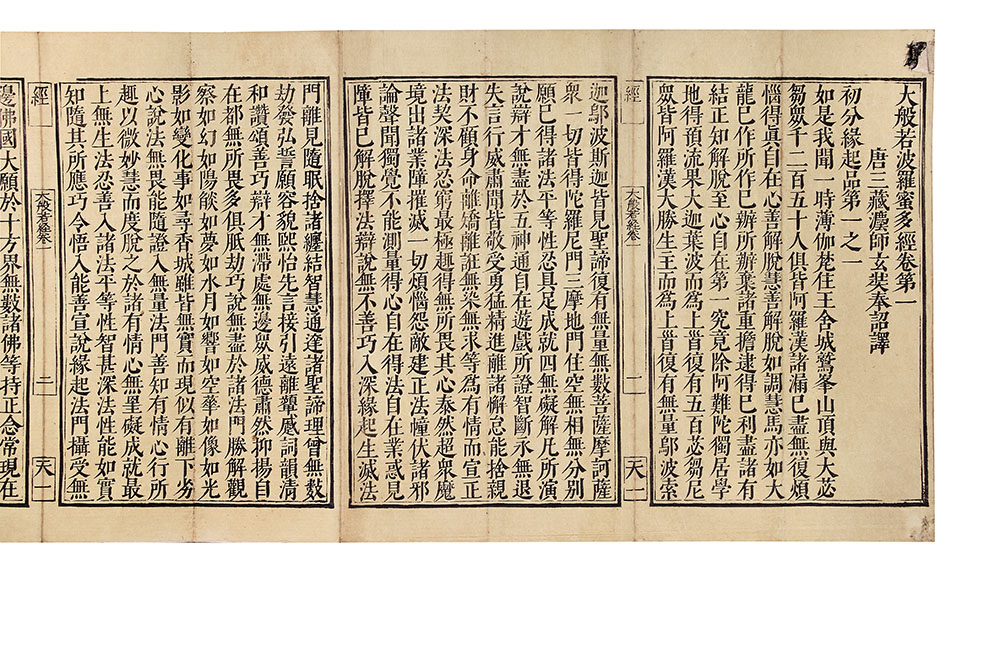 大般若波羅蜜多經卷第一
唐三藏灋師玄奘奉詔譯
初分緣起品第一之一
如是我聞一時薄伽梵住王舍城鷲峯山頂與大苾
芻眾千二百五十人俱皆阿羅漢諸漏已盡無復煩
惱得真自在心善解脫慧善解脫如調慧馬亦如大
龍已作所作已辦所辦棄諸重擔逮得已利盡諸有
結正知解脫至心自在第一究竟除阿難陀獨居學
地得預流果大迦葉波而為上首復有五百苾芻尼
眾皆阿羅漢大勝生主而為上首復有無量鄔波索
經 大般若經卷一 一 天一
迦鄔波斯迦皆見聖諦復有無量無數菩薩摩訶薩
眾一切皆得陀羅尼門三摩地門住空無相無分別
願已得諸法平等性忍具足成就四無礙解凡所演
說辯才無盡於五神通自在遊戲所證智斷永無退
失言行威肅聞皆敬受勇猛精進離諸懈怠能捨親
財不顧身命離矯離誑無染無求等為有情而宣正
法契深法忍窮最極趣得無所畏其心泰然超眾魔
境出諸業障摧滅一切煩惱怨敵建正法幢伏諸邪
論聲聞獨覺不能測量得心自在得法自在業惑見
障皆已解脫擇法辯說無不善巧入深緣起生滅法
門離見隨眠捨諸纏結智慧通達諸聖諦理曾無數
劫發弘誓願容貌熙怡先言接引遠離顰蹙詞韻清
和讚頌善巧辯才無滯處無邊眾威德肅然抑揚自
在都無所畏多俱胝劫巧說無盡於諸法門勝解觀
察如幻如陽燄如夢如水月如響如空華如像如光
影如變化事如尋香城雖皆無實而現似有離下劣
心說法無畏能隨證入無量法門善知有情心行所
趣以微妙慧而度脫之於諸有情心無罣礙成就最
上無生法忍善入諸法平等性智甚深法性能如實
知隨其所應巧令悟入能善宣說緣起法門攝受無
經 大般若經卷一 二 天一
邊佛國大願於十方界無數諸佛等持正念常現在